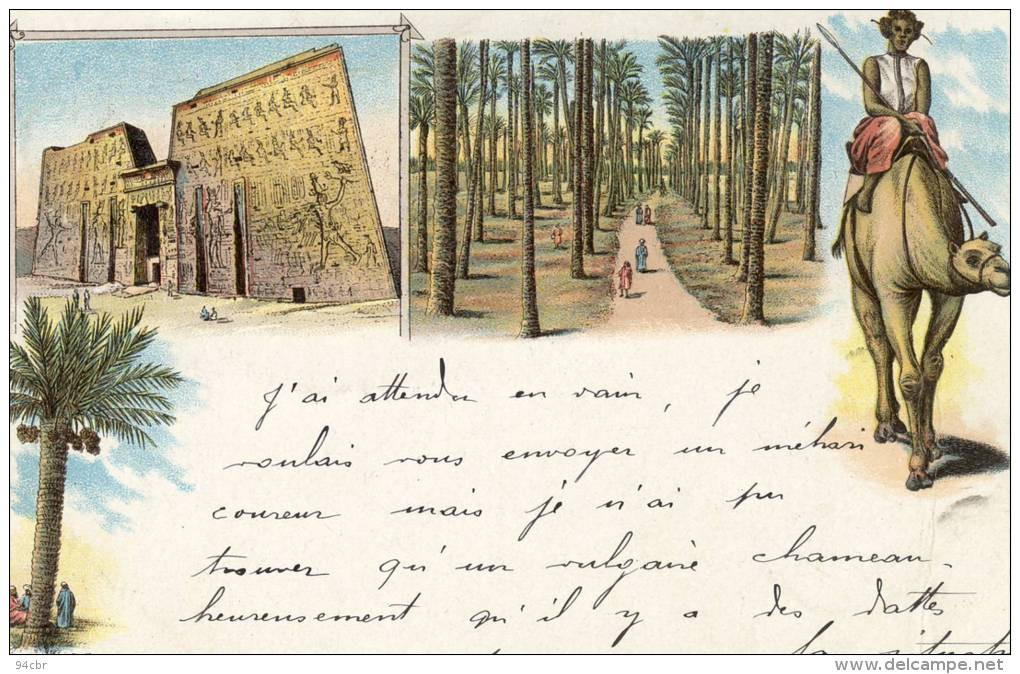 J'ai attendu en vain, je
voulais vous envoyer un méhari
coureur mais je n'ai pu
trouver qu'un vulgaire chameau,
heureusement qu'il y a des dattes
la
94cbr
www.delcampe.net